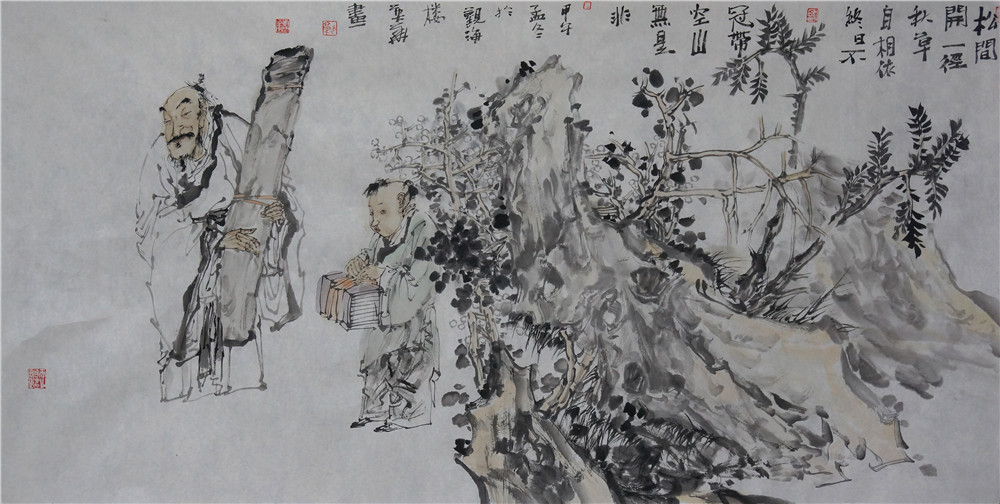 松間
開一徑
秋草
自相依
終日不
冠帶
空山
無是
非
甲午
孟冬
於
觀海
樓
畫